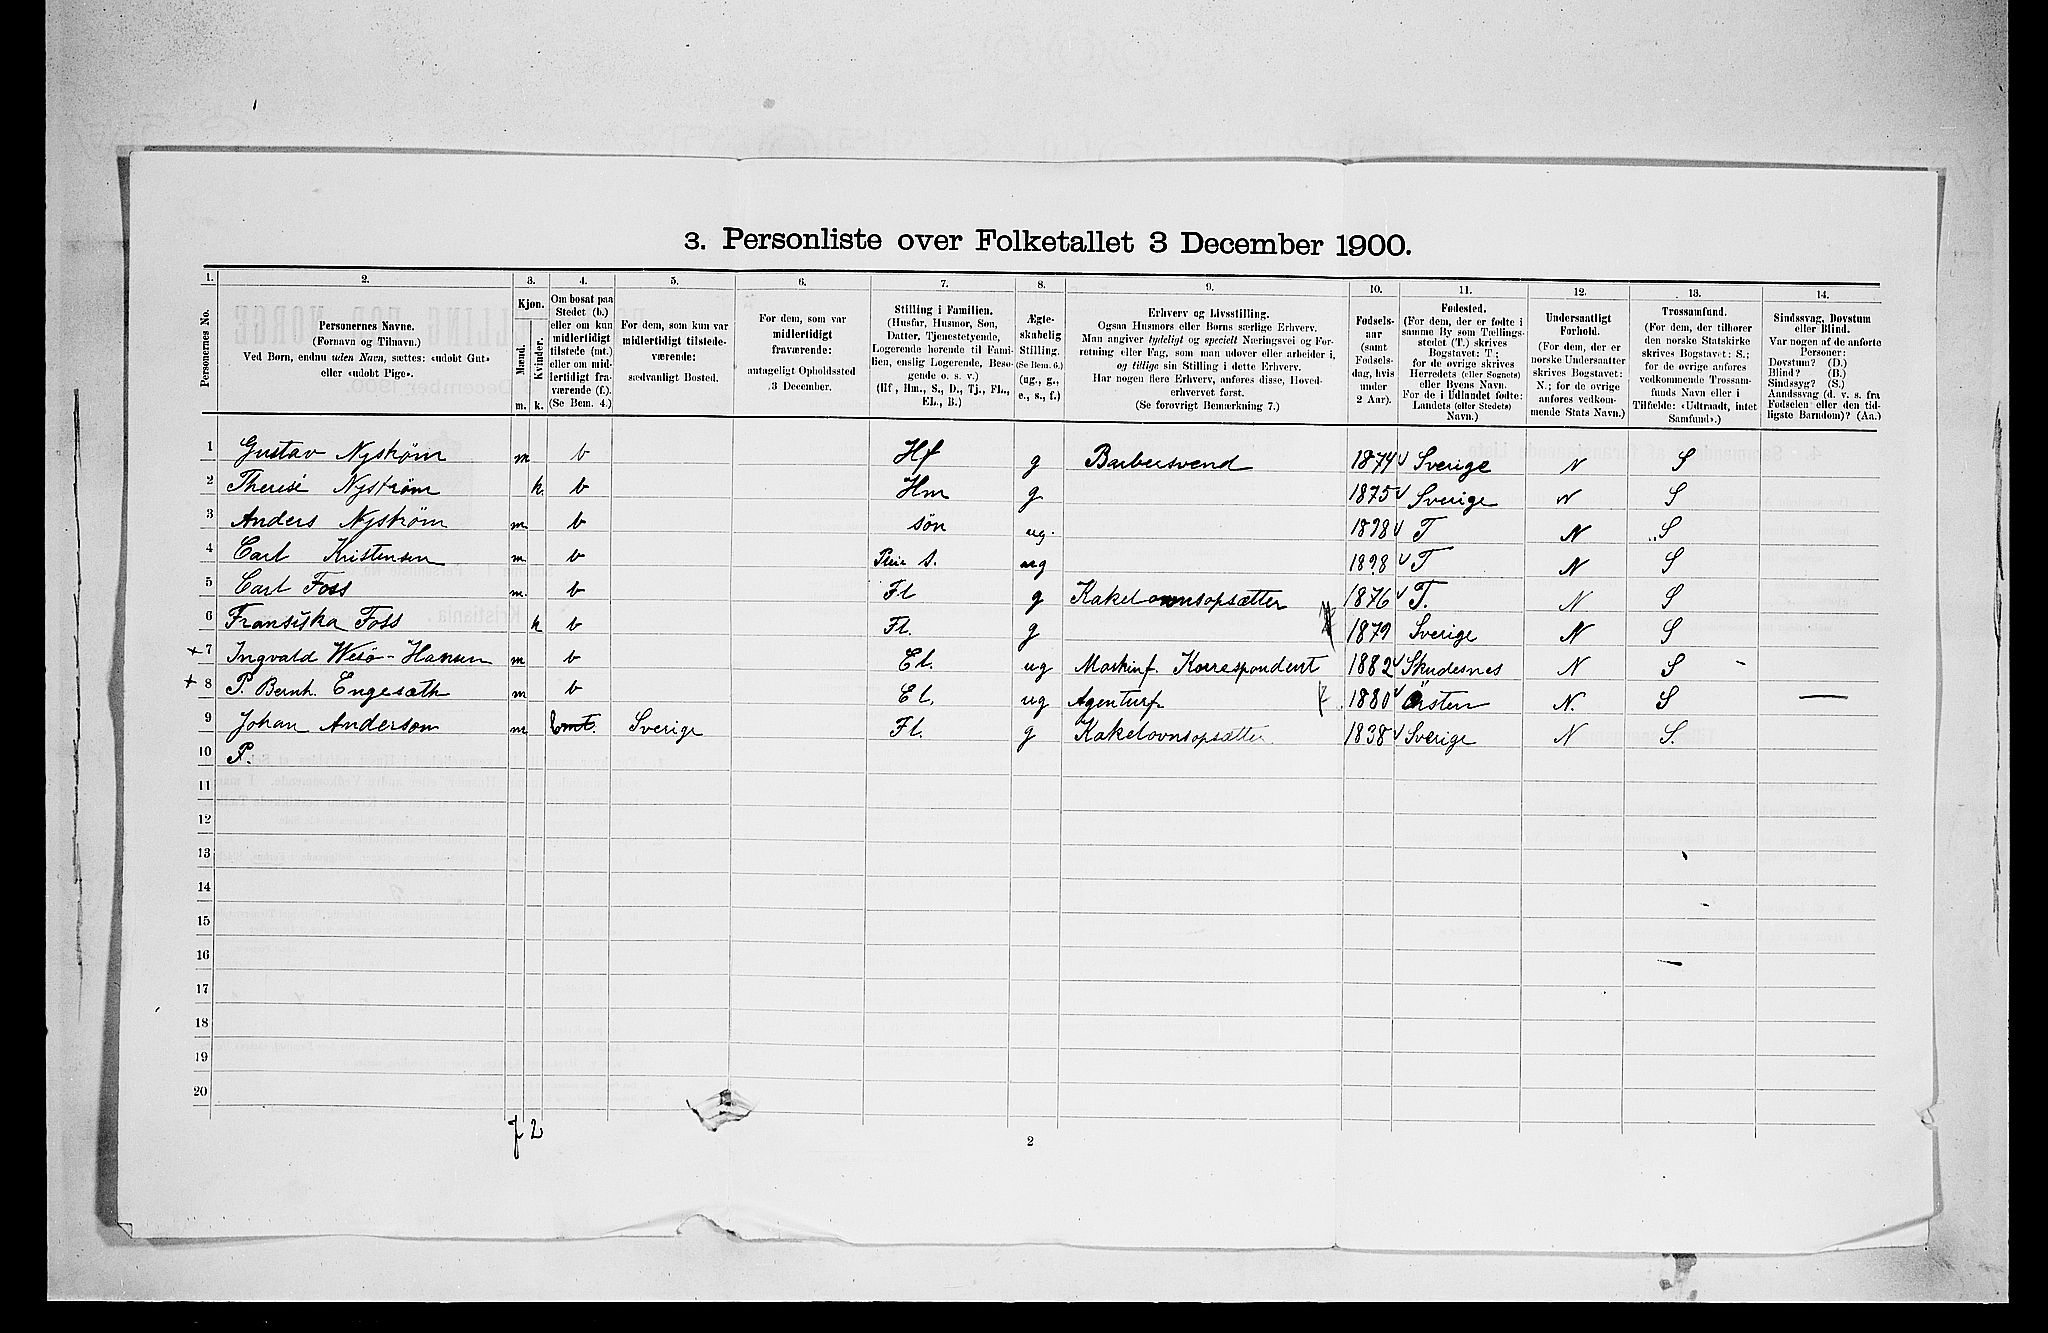 3. Personliste over Folketallet 3 December 1900.
1. 2. 3. 4. 5. 6. 7. 8. 9. 10. 11. 12. 13. 14.
Personernes No.
Personernes Navne.
(Fornavn og Tilnavn.)
Ved Børn, endnu uden Navn, sættes: «udøbt Gut»
eller «udøbt Pige».
Kjøn.
Mænd.
Kvinder.
m. k.
Om bosat paa
Stedet (b.)
eller om kun
midlertidigt
tilstede (mt.)
eller om mid-
lertidigt fra-
værende (f.).
(Se Bem. 4.)
For dem, som kun var
midlertidigt tilstede-
værende:
sædvanligt Bosted.
For dem, som var
midlertidigt
fraværende:
antageligt Opholdssted
3 December.
Stilling i Familien.
(Husfar, Husmor, Søn,
Datter, Tjenestetyende,
Logerende hørende til Fami-
lien, enslig Logerende, Besø-
gende o. s. v.)
(Hf., Hm., S., D., Tj., FL.,
EL., B.)
Ægte-
skabelig
Stilling.
(Se Bem. 6.)
(ug., g.,
e., s., f.)
Erhverv og Livsstilling.
Ogsaa Husmors eller Børns særlige Erhverv.
Man angiver tydeligt og specielt Næringsvei og For-
retning eller Fag, som man udøver eller arbeider i,
og tillige sin Stilling i dette Erhverv.
Har nogen flere Erhverv, anføres disse, Hoved-
erhvervet først.
(Se forøvrigt Bemærkning 7.)
Fødsels-
aar
(samt
Fødsels-
dag, hvis
under
2 Aar).
Fødested.
(For dem, der er fødte i
samme By som Tællings-
stedet (T.) skrives
Bogstavet: T;
for de øvrige skrives
Herredets (eller Sognets)
eller Byens Navn.
For de i Udlandet fødte:
Landets (eller Stedets)
Navn.)
Undersaatligt
Forhold.
(For dem, der er
norske Undersaatter
skrives Bogstavet:
N.; for de øvrige
anføres vedkom-
mende Stats Navn.)
Trossamfund.
(For dem, der tilhører
den norske Statskirke
skrives Bogstavet: S.;
for de øvrige anføres
vedkommende Trossam-
funds Navn eller i
Tilfælde: «Udtraadt, intet
Samfund».)
Sindssvag, Døvstum
eller Blind.
Var nogen af de anførte
Personer:
Døvstum? (D.)
Blind? (B.)
Sindssyg? (S.)
Aandssvag (d. v. s. fra
Fødselen eller den tid-
ligste Barndom)? (Aa.)
1 Gustav Nyström m b Hf g Barbersvend 1874 Sverige N S
2 Therese Nyström k. b Hm g 1875 Sverige N S
3 Anders Nyström m. b søn ug. 1898 T N S
4 Carl Kristensen m. b Pleie s. ug 1898 T N S
5 Carl Foss m. b Fl g Kakelovnsopsætter 1876 T. N S
6 Fransiska Foss k b Fl. g 1879 Sverige N S
+ 7 Ingvald Wesø-Hansen m b El. ug Maskinf. Korrespondent 1882 Skudesnes N S -
+ 8 P. Bernh. Engesæth m b El. ug Agenturf. 1880 Örsten N. S —
9 Johan Anderson m bmt. Sverige Fl. g Kakelovnsopsætter 1838 Sverige N S.
10 P.
11
12
13
14
15
16
17
18
19
20
7 2
2